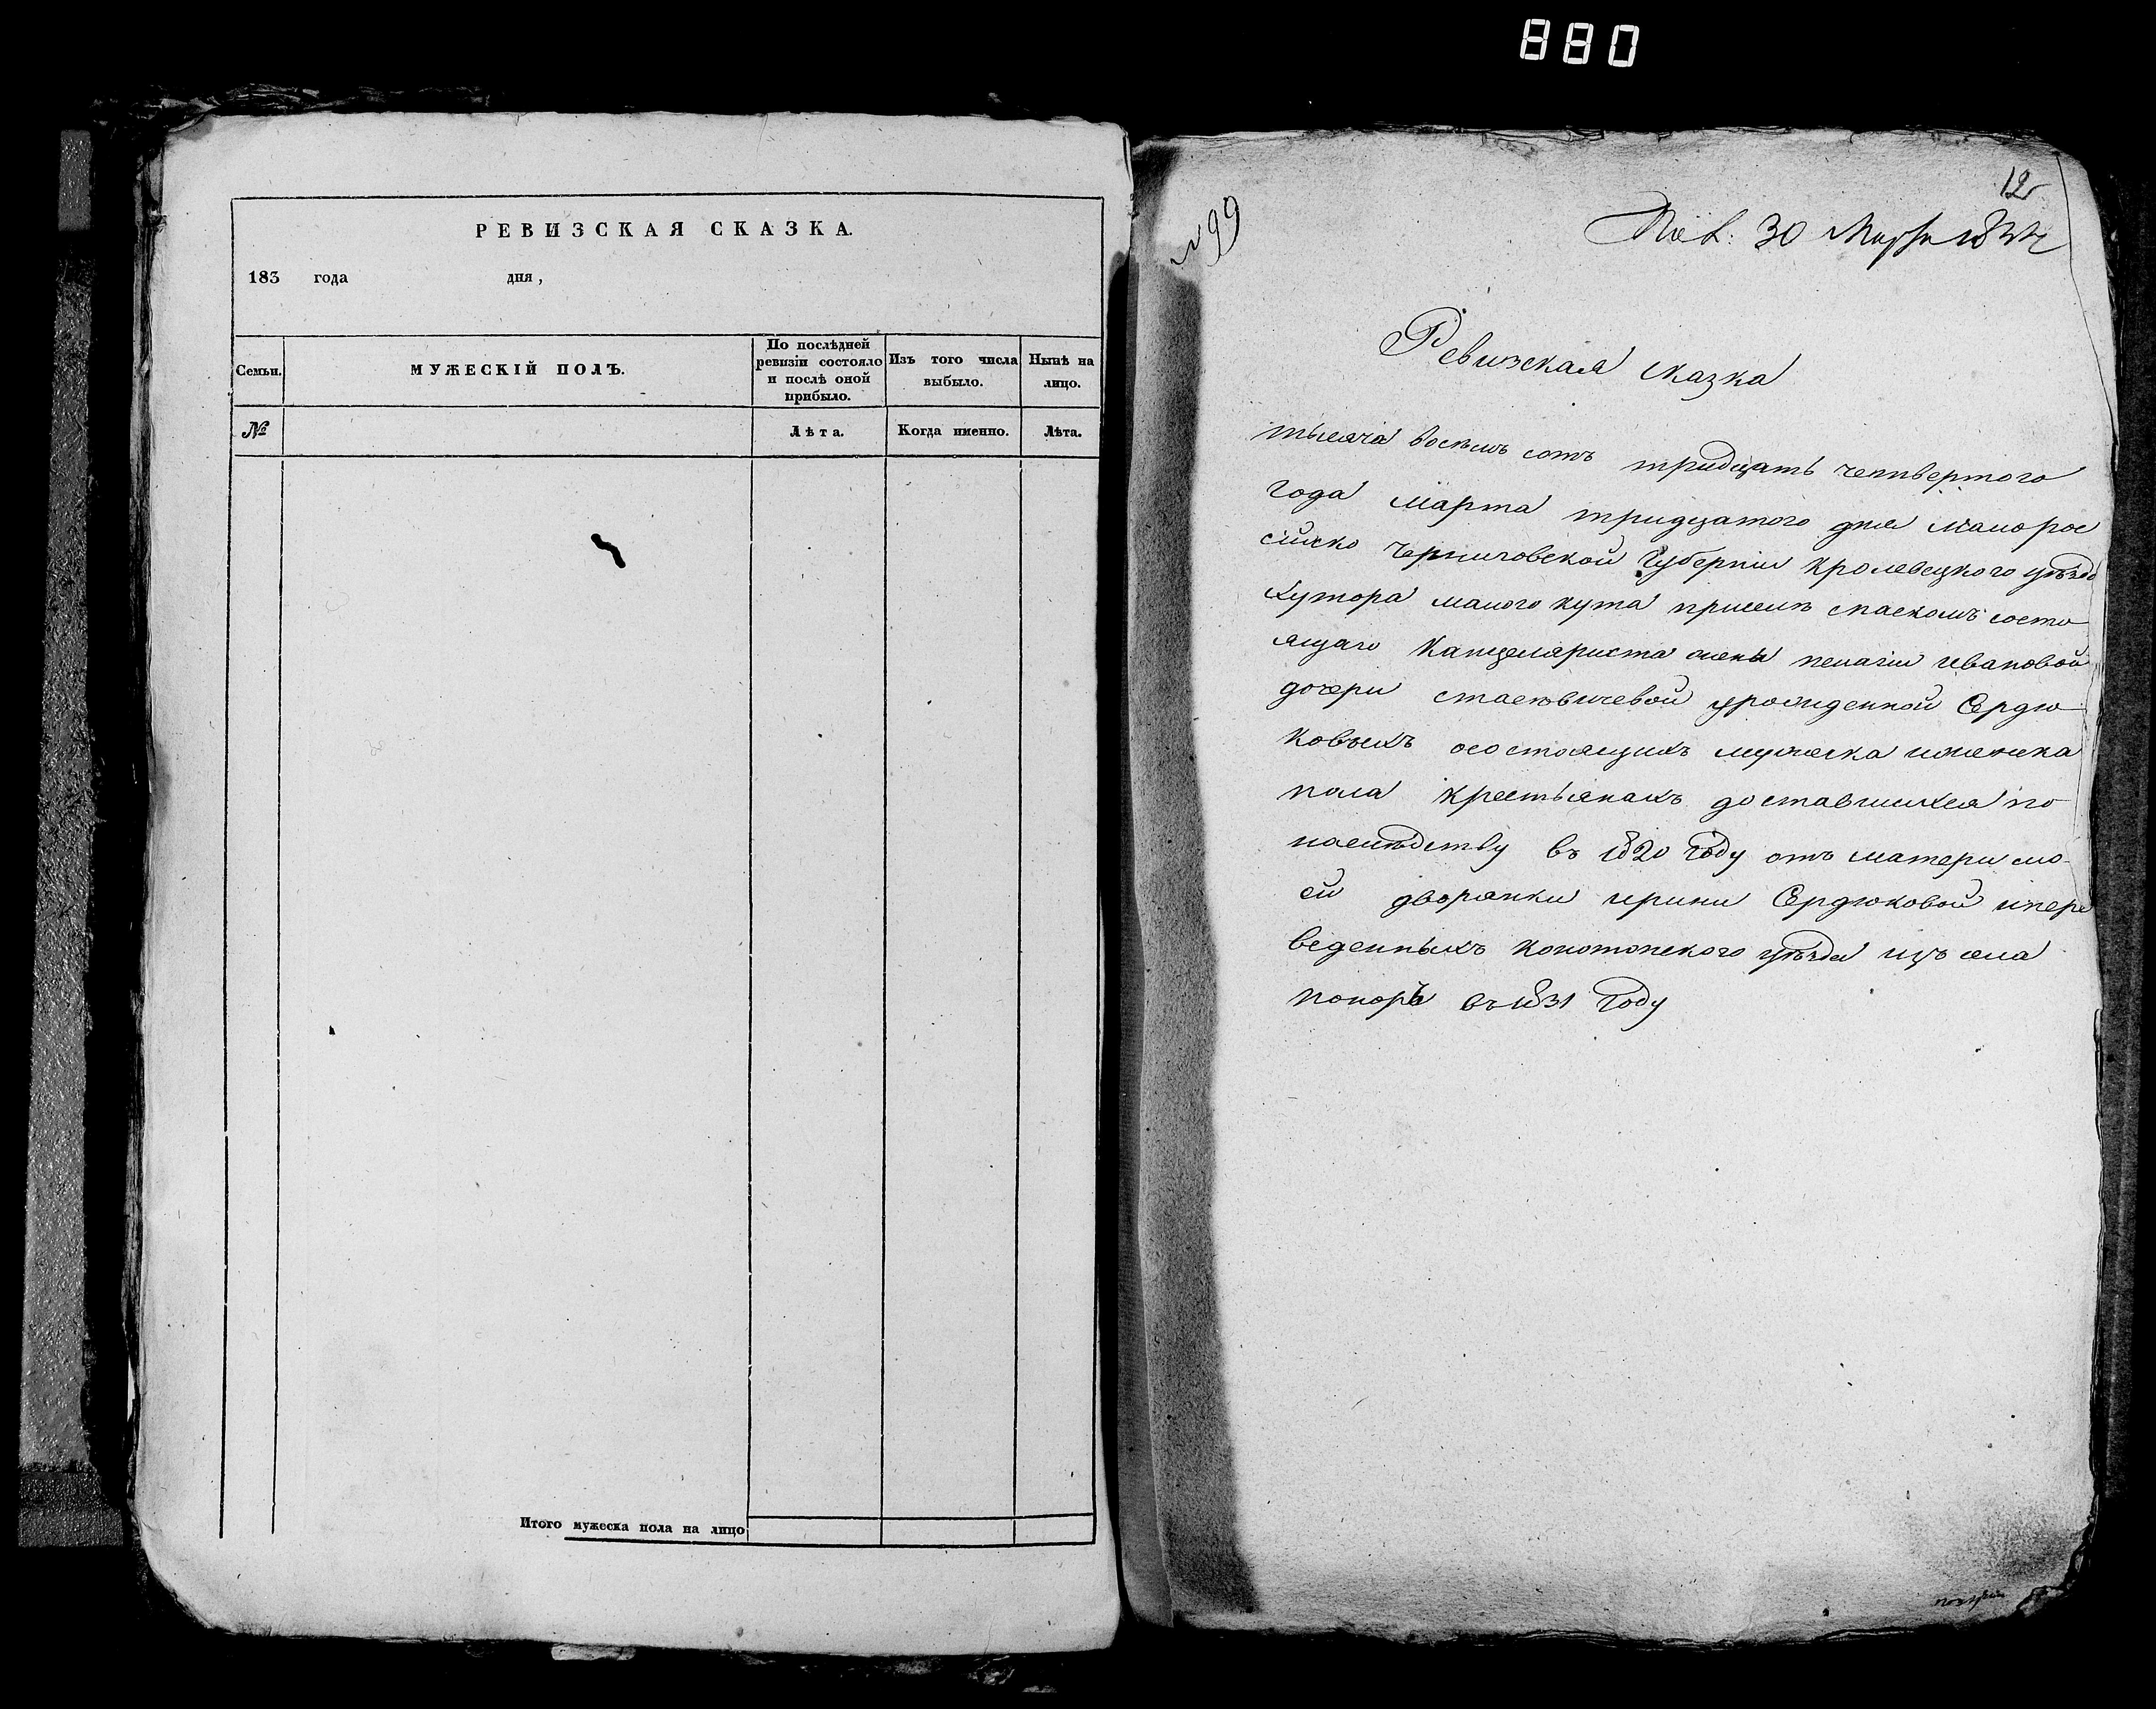 880
РЕВИЗСКАЯ СКАЗКА.
183 года дня,
Семьи.
МУЖЕСКІЙ ПОЛЪ.
По послѣдней
ревизіи состояло
и послѣ оной
прибыло.
Изъ того числа
выбыло.
Нынѣ на
лицо.
№
Лѣта.
Когда именно.
Лѣта.
Итого мужеска пола на лицо
№ 99
12
30 Марта 1834
Ревизская сказка
тысяча восемь сотъ тридцать четвертого
года марта тридцатого дня малорос
сійско Черниговской Губерніи Кролевецкого уѣзда
хутора малого кута приселѣ спаскомъ состо
ящаго Канцеляриста жены пелагіи ивановой
дочери стаевичевой урожденной Сердю
ковыхъ осостоящихъ мужеска иженска
пола крестьянахъ доставшихся по
наслѣдству въ 1820 году отъ матери мо
ей дворянки ирини Сердюковой ипере
веденныхъ конотопского уѣзда изъ села
попоръ въ 1831 году